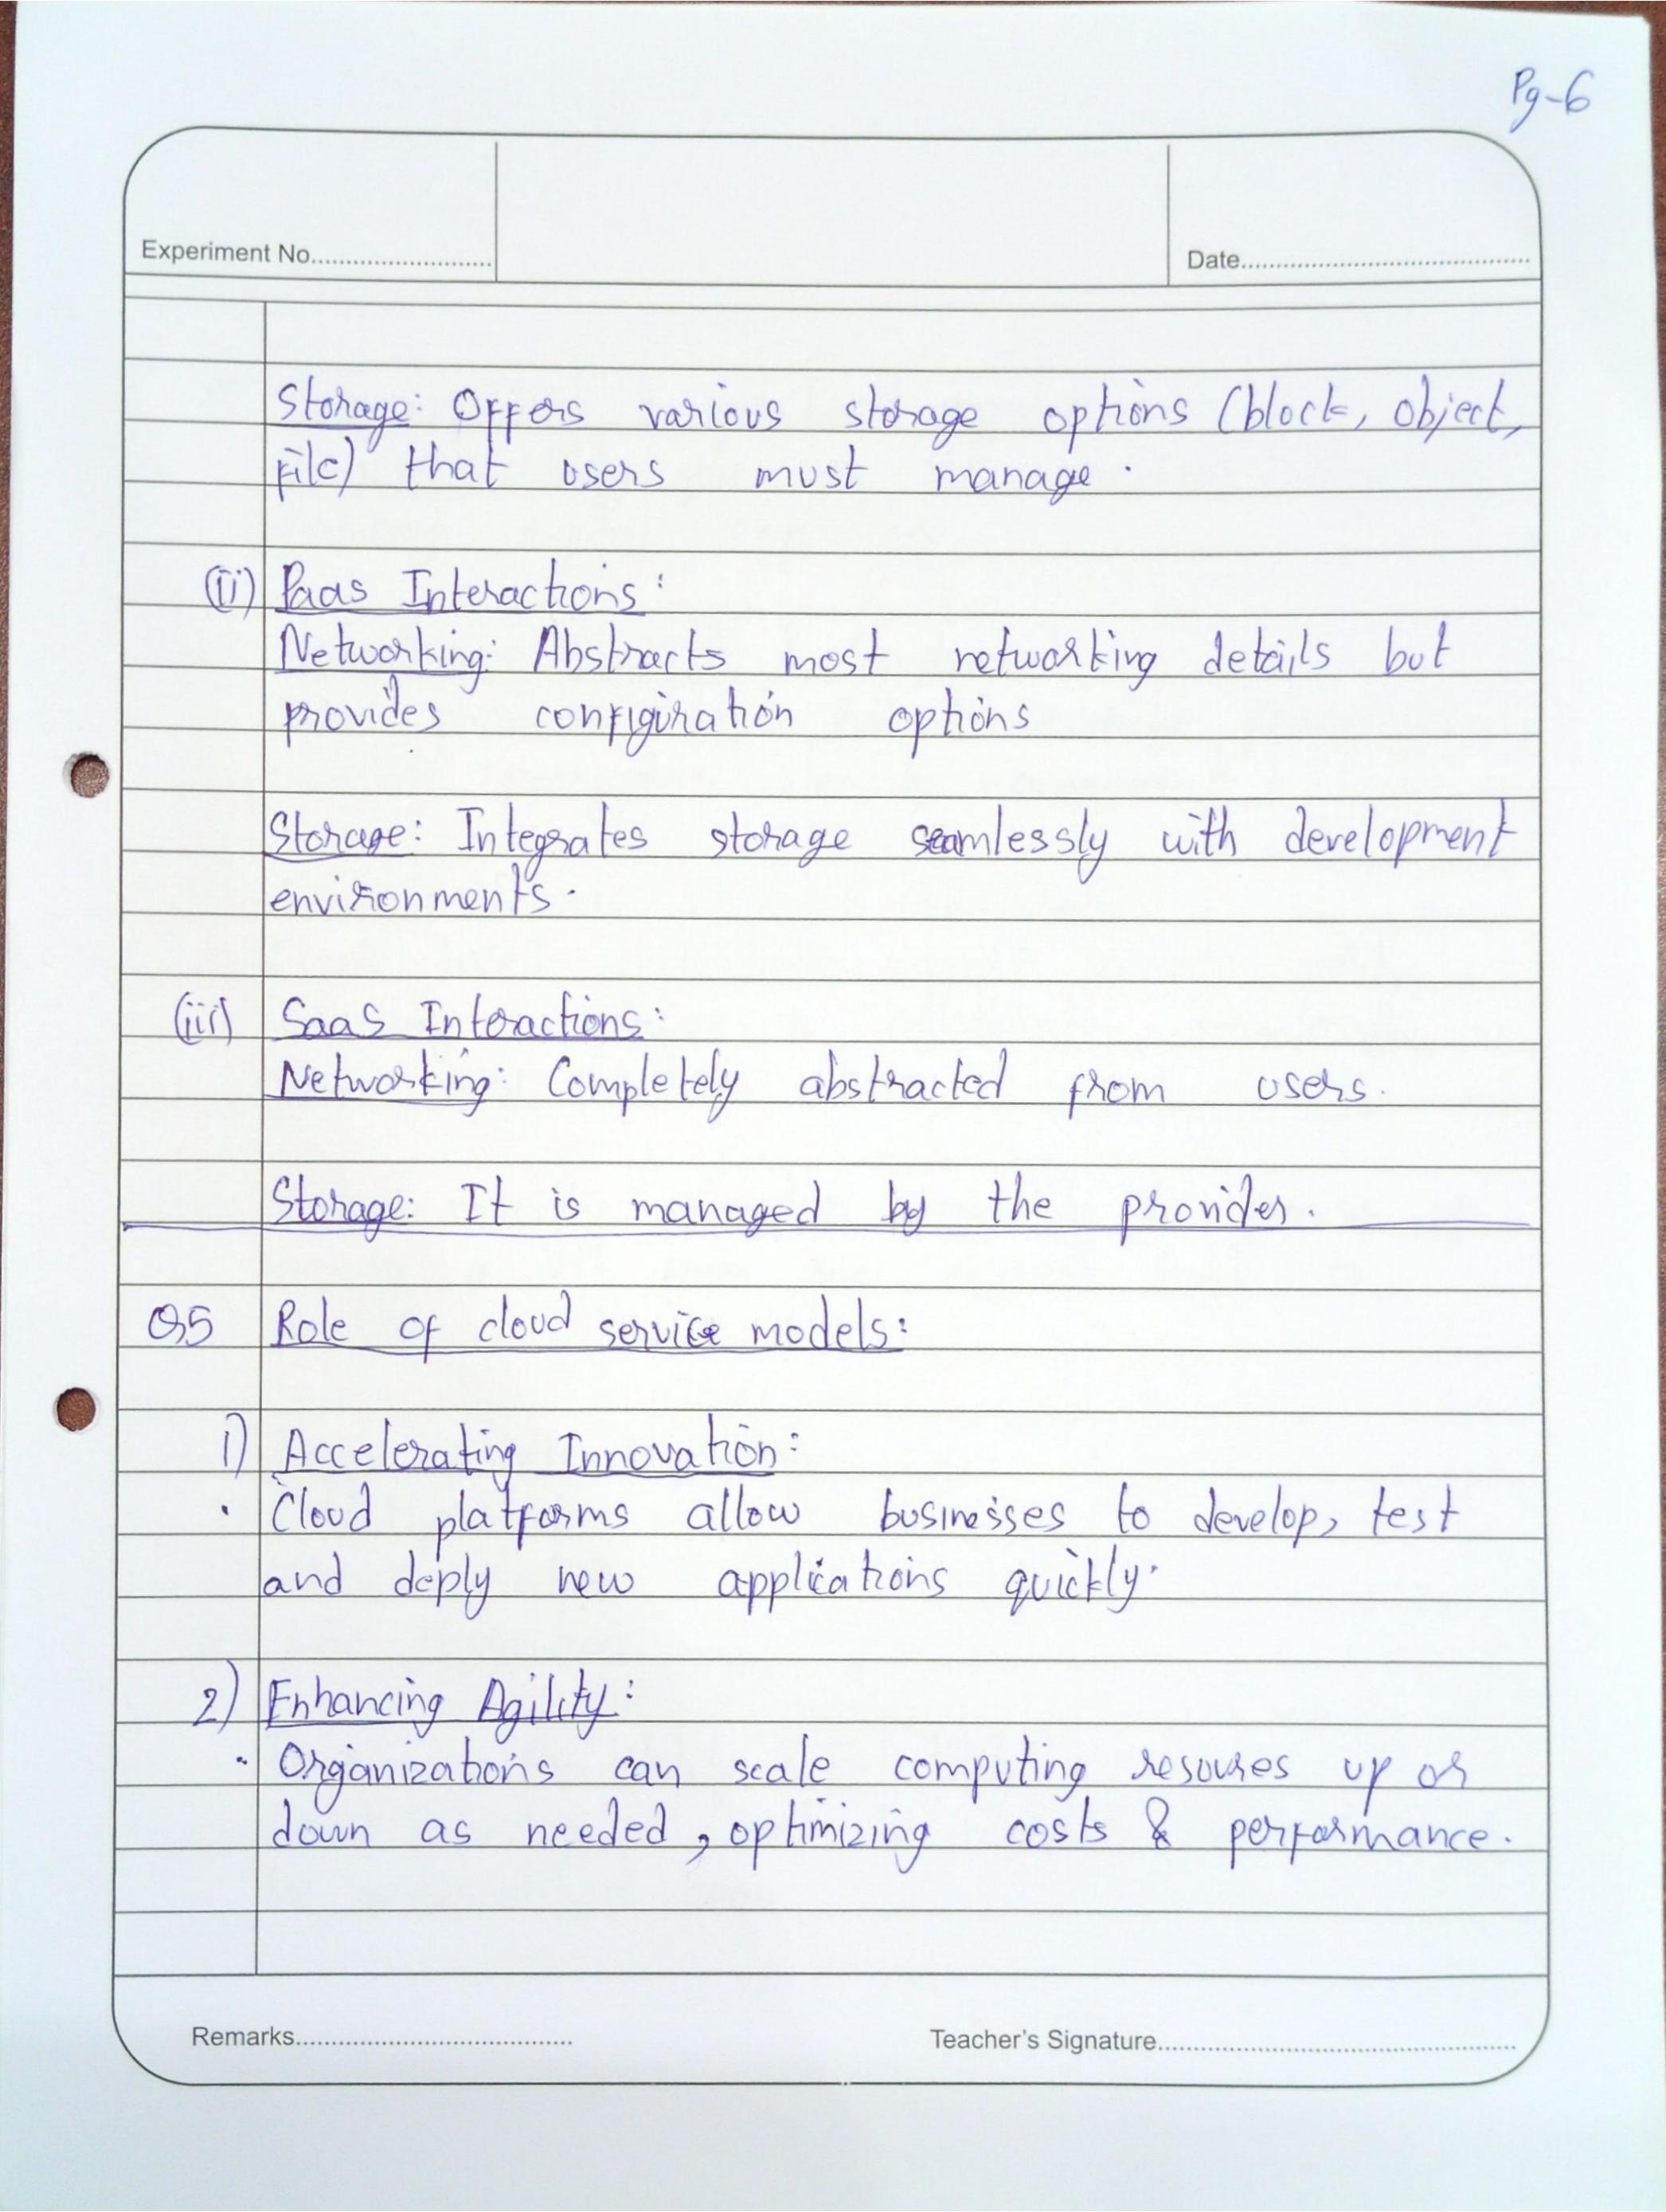 Pg-6
Experiment No.
Date
Storage: Offers various storage options (block, object,
file) that users must manage.
(ii) Paas Interactions:
Networking: Abstracts most networking details but
provides configiration options
Storage: Integrates storage seamlessly with development
environments.
(iii) SaaS Interactions:
Networking: Completely abstracted from users.
Storage: It is managed by the provider.
Q5 Role of cloud service models:
1) Accelerating Innovation:
• Cloud platforms allow businesses to develop, test
and deply new applications quickly.
2) Enhancing Agility:
• Organizations can scale computing resources up or
down as needed, optimizing costs & performance.
Remarks
Teacher's Signature